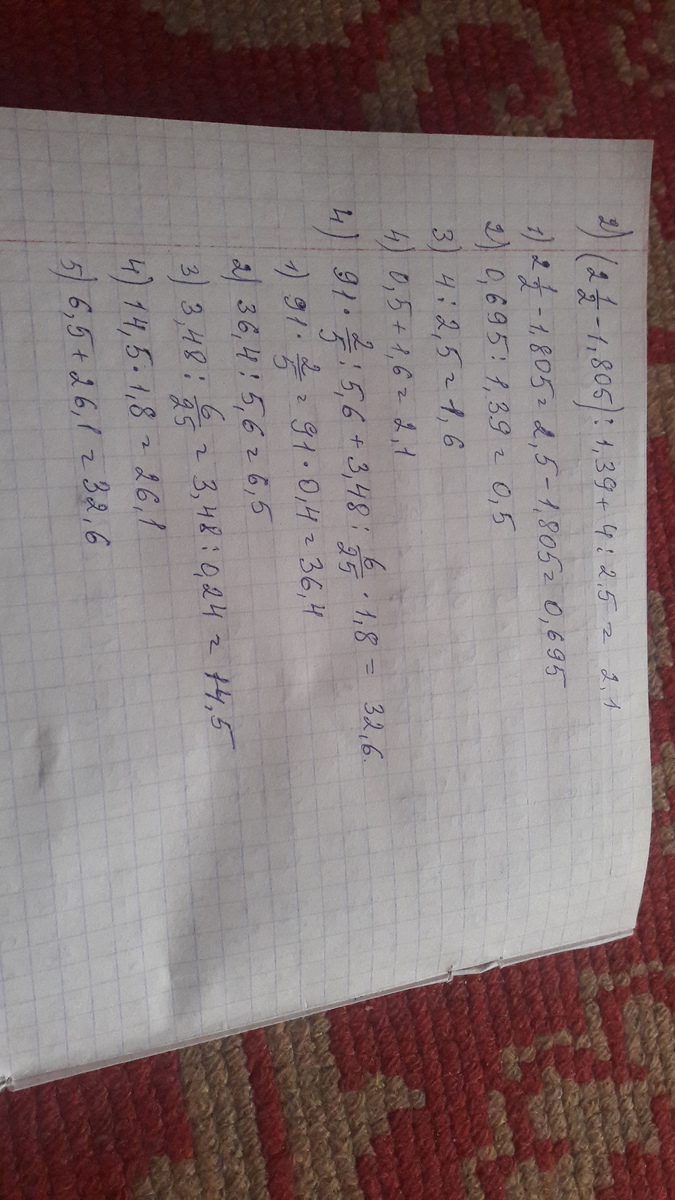 2) (2 1/2 - 1,805) : 1,39 + 4 : 2,5 = 2,1
1) 2 1/2 - 1,805 = 2,5 - 1,805 = 0,695
2) 0,695 : 1,39 = 0,5
3) 4 : 2,5 = 1,6
4) 0,5 + 1,6 = 2,1
4) 91 · 2/5 : 5,6 + 3,48 : 6/25 · 1,8 = 32,6.
1) 91 · 2/5 = 91 · 0,4 = 36,4
2) 36,4 : 5,6 = 6,5
3) 3,48 : 6/25 = 3,48 : 0,24 = 14,5
4) 14,5 · 1,8 = 26,1
5) 6,5 + 26,1 = 32,6